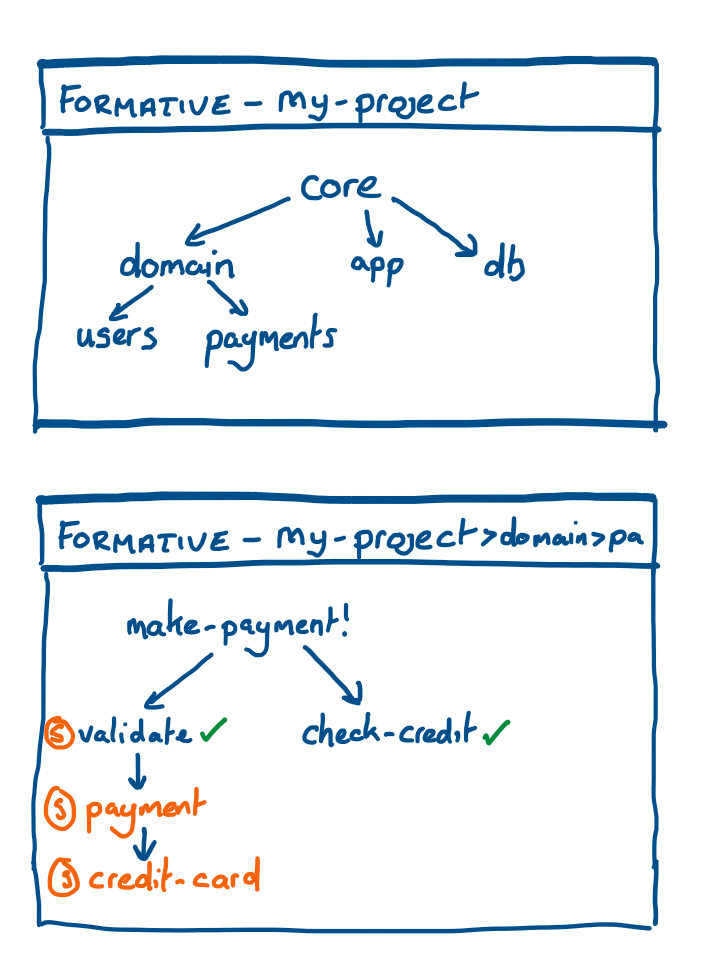 FORMATIVE - my-project
core
domain app db
users payments
FORMATIVE - my-project>domain>pa
make-payment!
S validate ✓ check-credit ✓
S payment
S credit-card